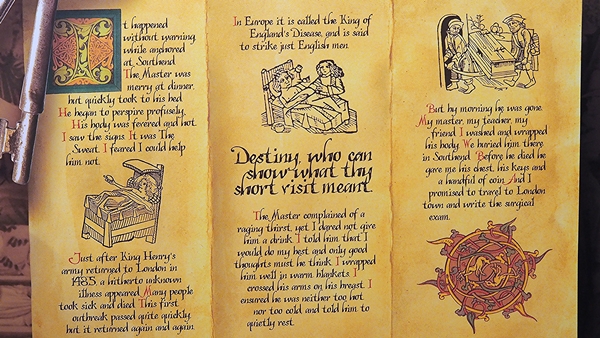 It happened
without warning
while anchored
at Southend.
The Master was
merry at dinner,
but quickly took to his bed.
He began to perspire profusely.
His body was fevered and hot.
I saw the signs. It was The
Sweat. I feared I could help
him not.
Just after King Henry's
army returned to London in
1485, a hitherto unknown
illness appeared. Many people
took sick and died. This first
outbreak passed quite quickly,
but it returned again and again.
In Europe it is called the King of
England's Disease, and is said
to strike just English men.
Destiny, who can
show what thy
short visit meant.
The Master complained of a
raging thirst, yet I dared not give
him a drink. I told him that I
would do my best and only good
thoughts must he think. I wrapped
him well in warm blankets. I
crossed his arms on his breast. I
ensured he was neither too hot
nor too cold and told him to
quietly rest.
But by morning he was gone.
My master, my teacher, my
friend. I washed and wrapped
his body. We buried him there
in Southend. Before he died he
gave me his chest, his keys and
a handful of coin. And I
promised to travel to London
town and write the surgical
exam.